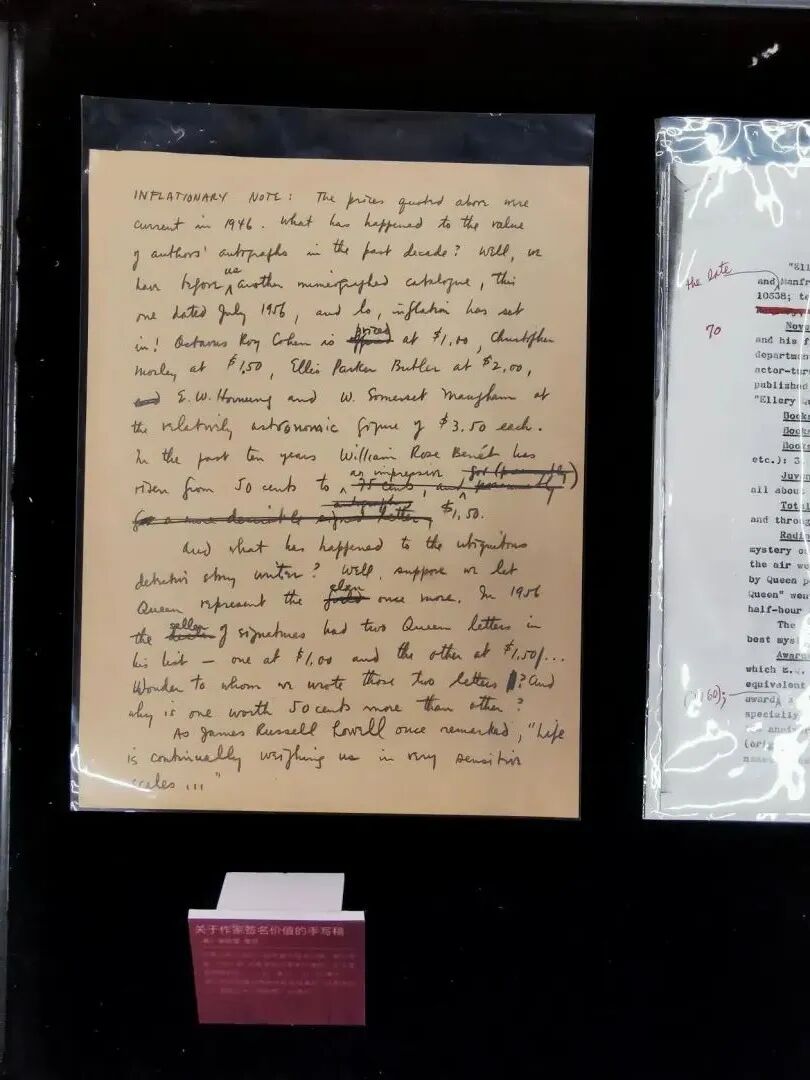 INFLATIONARY NOTE: The prices quoted above were
current in 1946. What has happened to the value
of authors' autographs in the past decade? Well, we
have before us another mimeographed catalogue, this
one dated July 1956, and lo, inflation has set
in! Octavus Roy Cohen is priced at $1.00, Christopher
Morley at $1.50, Ellis Parker Butler at $2.00,
and E.W. Hornung and W. Somerset Maugham at
the relatively astronomic figure of $3.50 each.
In the past ten years William Rose Benét has
risen from 50 cents to an impressive
$1.50.
And what has happened to the ubiquitous
detective story writer? Well, suppose we let
Queen represent the clan once more. In 1956
the seller of signatures had two Queen letters in
his list — one at $1.00 and the other at $1.50! ...
Wonder to whom we wrote those two letters? And
why is one worth 50 cents more than other?
As James Russell Lowell once remarked, "Life
is continually weighing us in very sensitive
scales ..."
关于作家签名价值的手写稿
the date
70
"Ell
and Manfr
10538; to
Nove
and his f
departmen
actor-tur
published
"Ellery Qu
Books
Books
Books
etc.): 3
Juve
all abou
Tota
and throu
Radio
mystery o
the air we
by Queen p
Queen" wen
half-hour
The
best myst
Award
which E.Q.
equivalent
award,
specially
anniv
60);